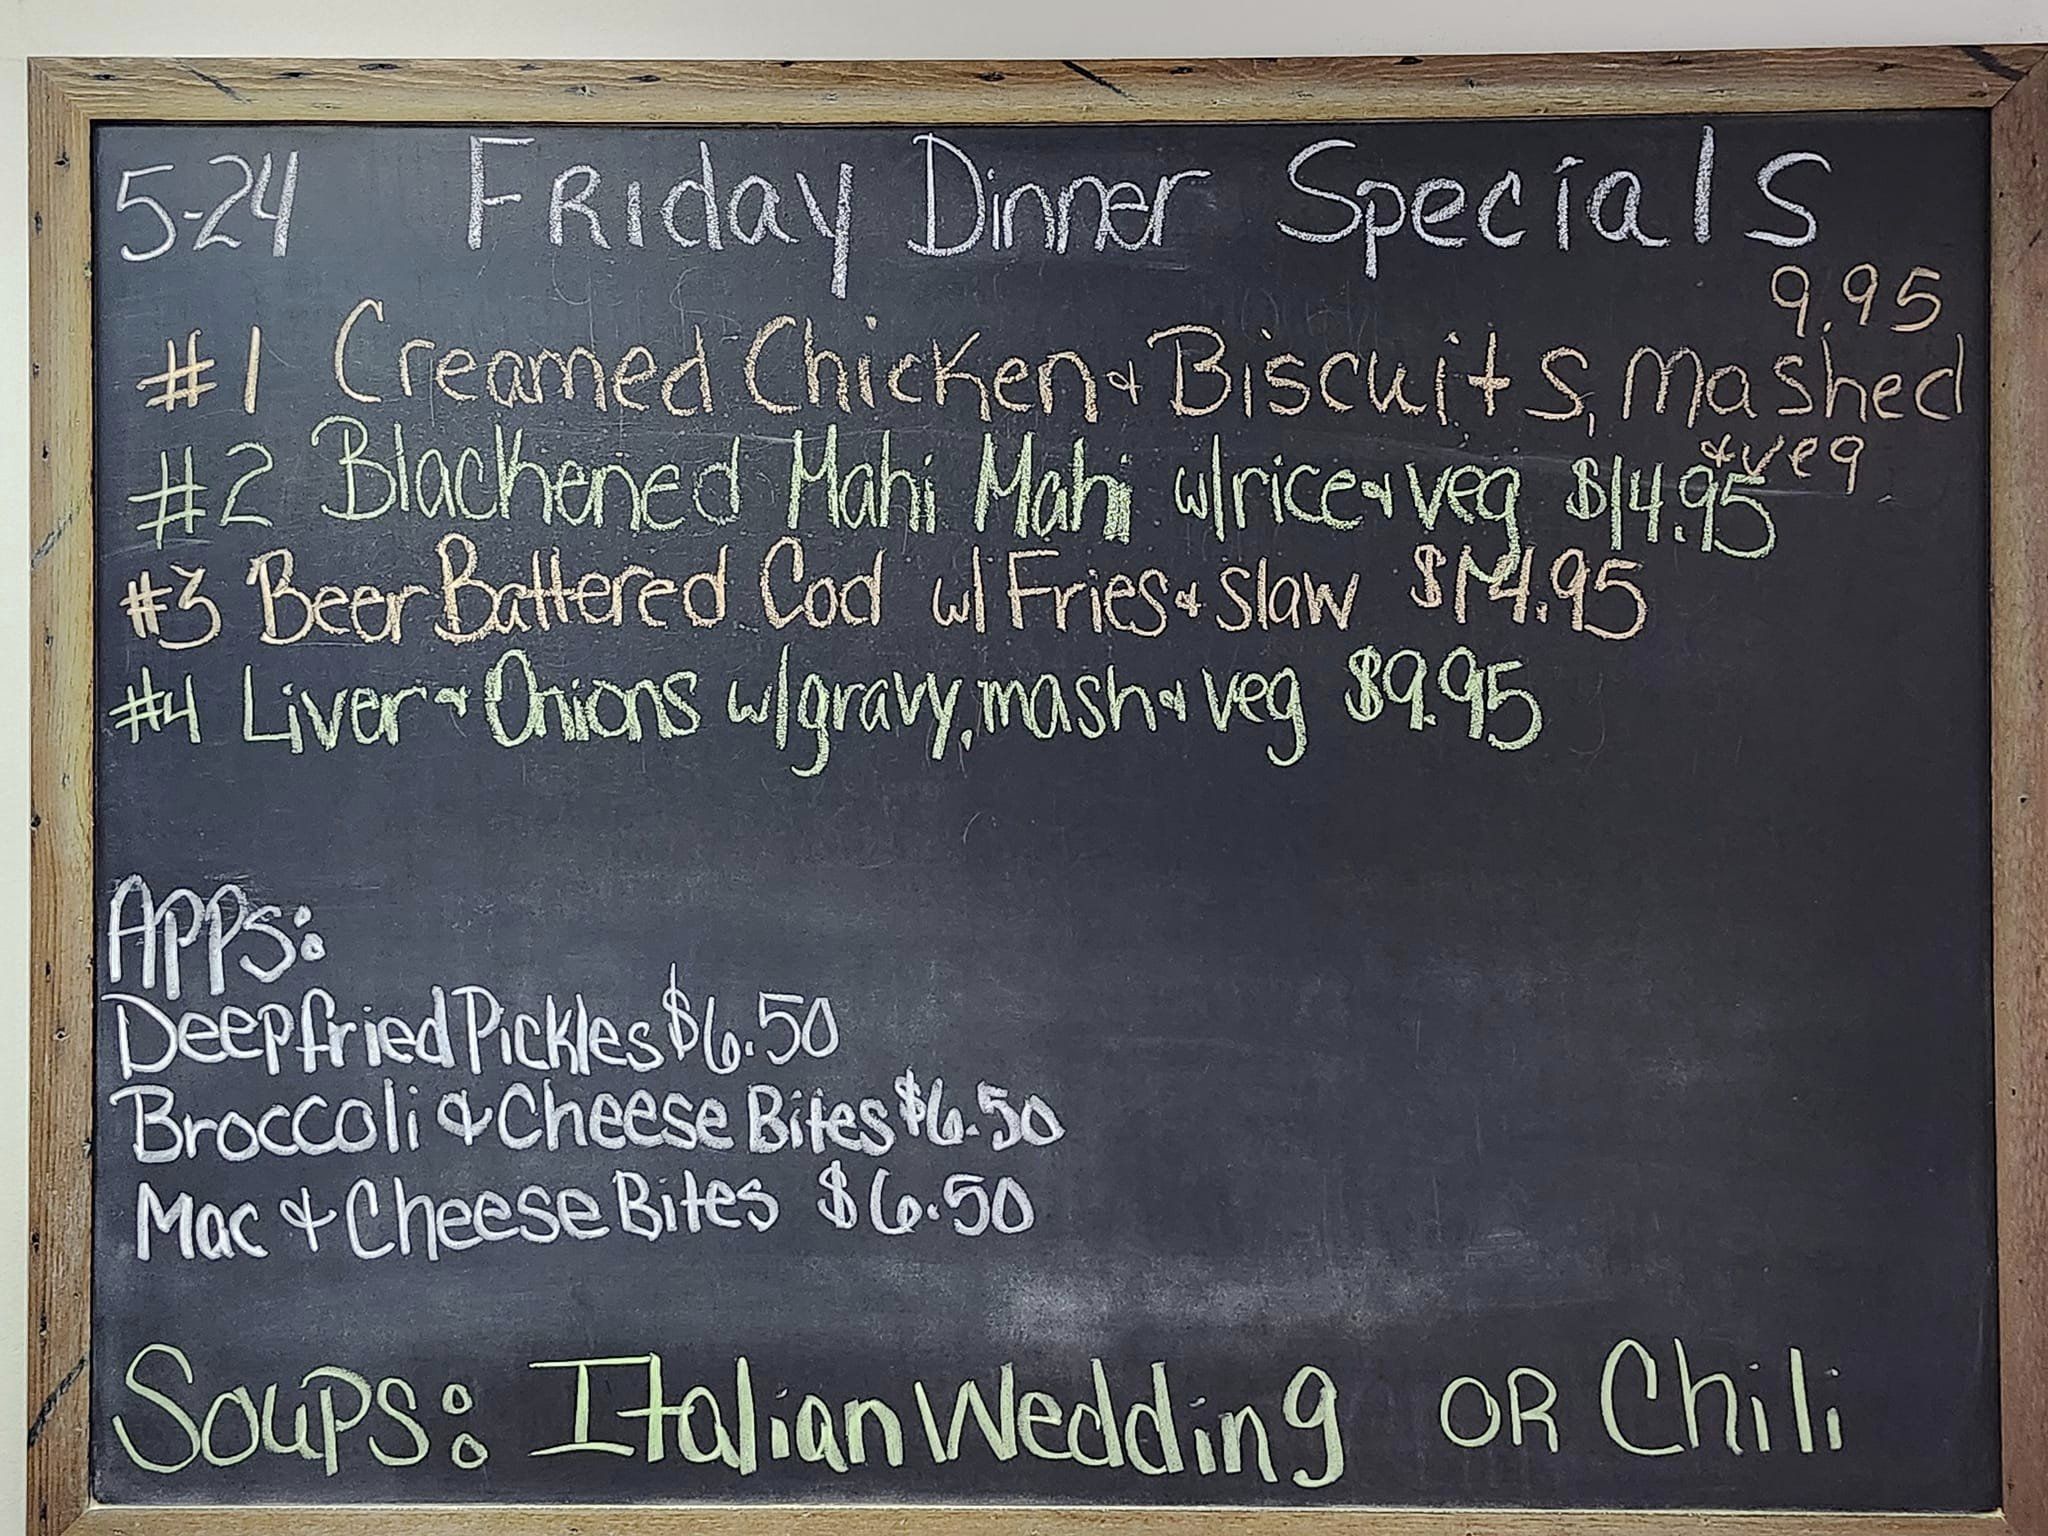 5-24 Friday Dinner Specials
9.95
#1 Creamed Chicken & Biscuits, Mashed
& veg
#2 Blackened Mahi Mahi w/rice & veg $14.95
#3 Beer Battered Cod w/ Fries & slaw $14.95
#4 Liver & Onions w/gravy, mash & veg $9.95
APPS:
Deepfried Pickles $6.50
Broccoli & Cheese Bites $6.50
Mac & Cheese Bites $6.50
Soups: Italian Wedding OR Chili